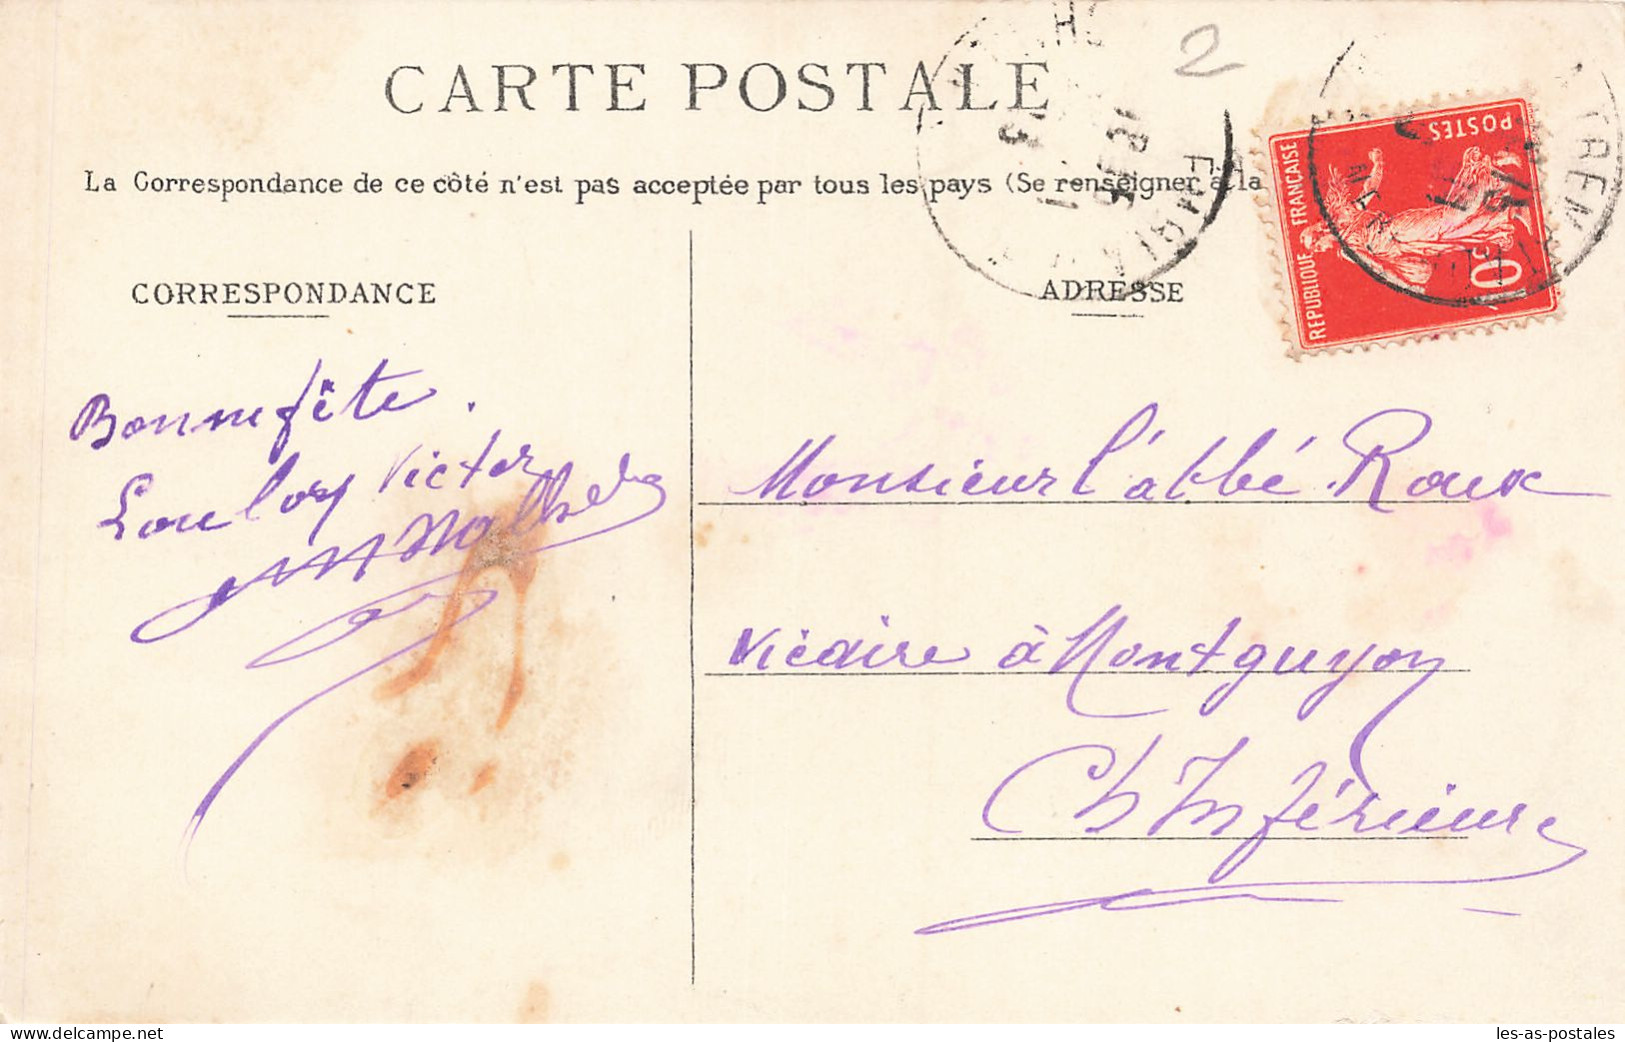 CARTE POSTALE
2
La Correspondance de ce côté n'est pas acceptée par tous les pays (Se renseigner à la
CORRESPONDANCE
ADRESSE
REPUBLIQUE FRANÇAISE
POSTES
10c
Bonne fête.
Victor
Monsieur l'abbé Roux
Vicaire à Montguyon
Ch Inférieure
www.delcampe.net
les-as-postales